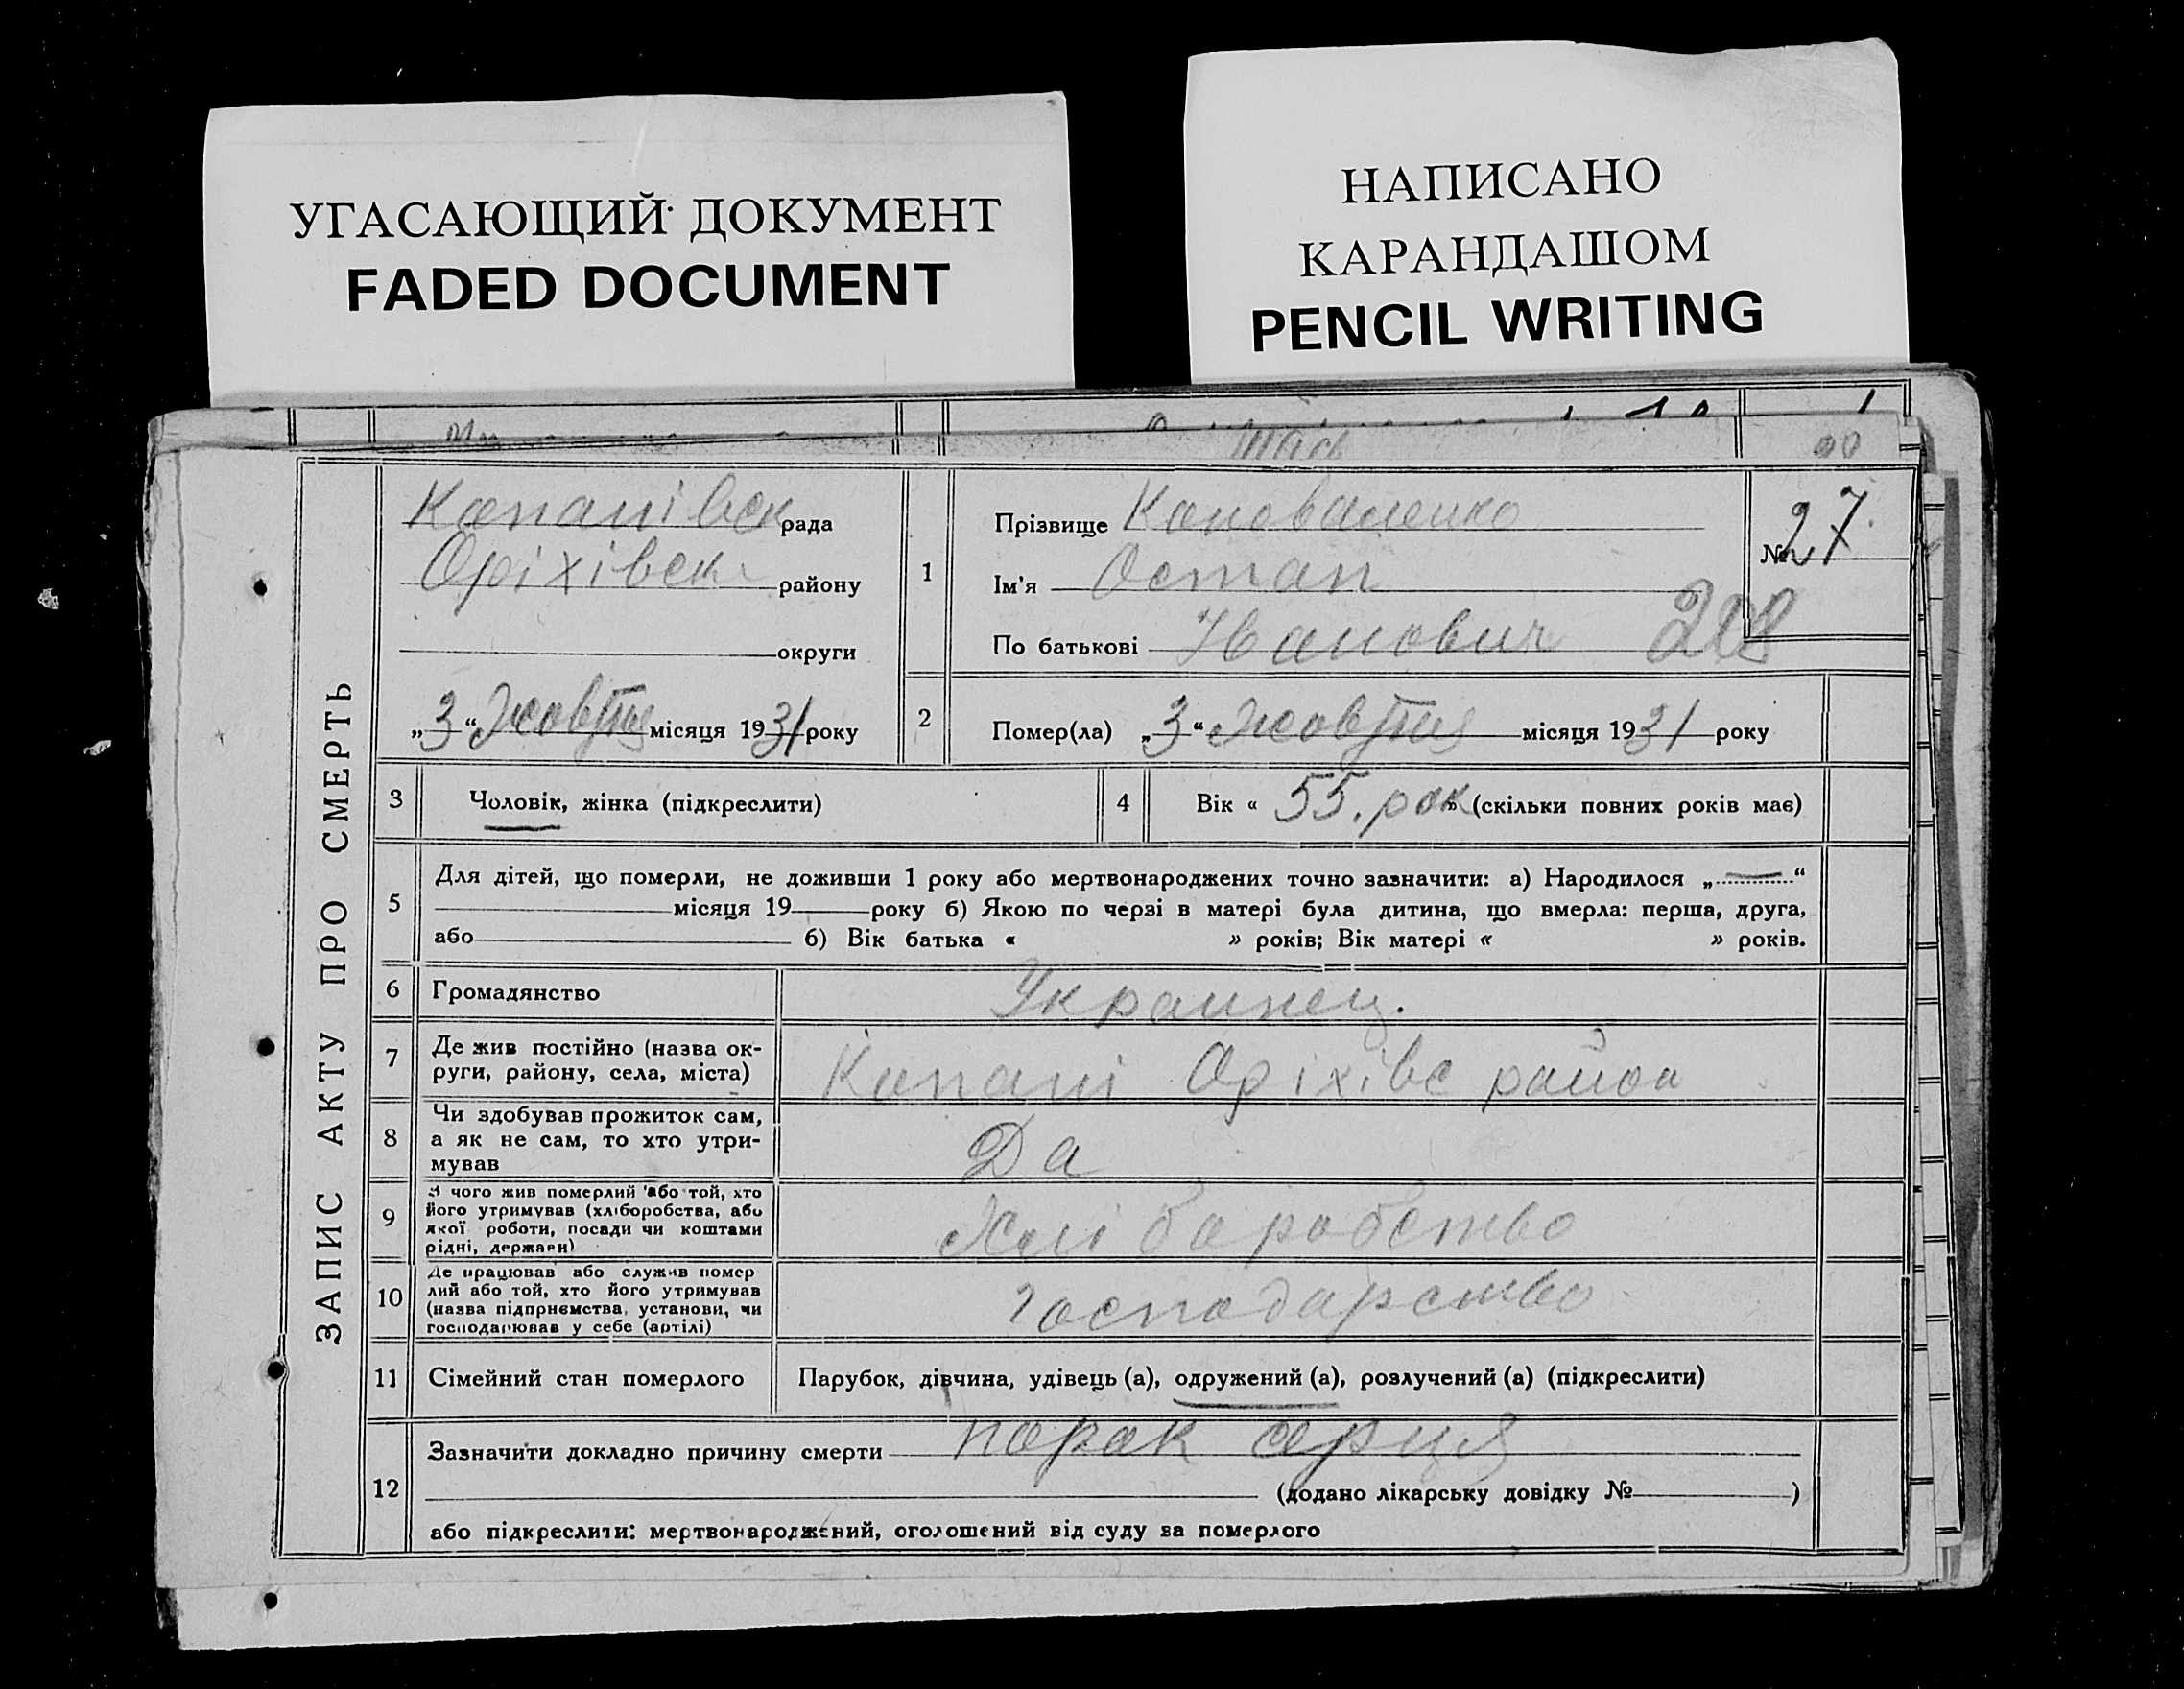 УГАСАЮЩИЙ ДОКУМЕНТ
FADED DOCUMENT
НАПИСАНО
КАРАНДАШОМ
PENCIL WRITING
ЗАПИС АКТУ ПРО СМЕРТЬ
Копанівск рада
Оріхівськ району
округи
„3“ Жовтня місяця 1931 року
1
Прізвище Коноваленко
Ім'я Остап
По батькові Иванович
№ 27
208
2
Помер(ла) „3“ Жовтня місяця 1931 року
3
Чоловік, жінка (підкреслити)
4
Вік « 55. рок » (скільки повних років має)
5
Для дітей, що померли, не доживши 1 року або мертвонароджених точно зазначити: а) Народилося „ “
місяця 19 року б) Якою по черзі в матері була дитина, що вмерла: перша, друга,
або б) Вік батька « » років; Вік матері « » років.
6
Громадянство
Украинец.
7
Де жив постійно (назва ок-
руги, району, села, міста)
Копані Оріхівс район
8
Чи здобував прожиток сам,
а як не сам, то хто утри-
мував
Да
9
З чого жив померлий або той, хто
його утримував (хліборобства, або
якої роботи, посади чи коштами
рідні, держави)
Хліборобство
10
Де працював або служив помер
лий або той, хто його утримував
(назва підприємства, установи, чи
господарював у себе (артілі)
господарство
11
Сімейний стан померлого
Парубок, дівчина, удівець (а), одружений (а), розлучений (а) (підкреслити)
12
Зазначити докладно причину смерти порок серця
(додано лікарську довідку № )
або підкреслити: мертвонароджений, оголошений від суду за померлого